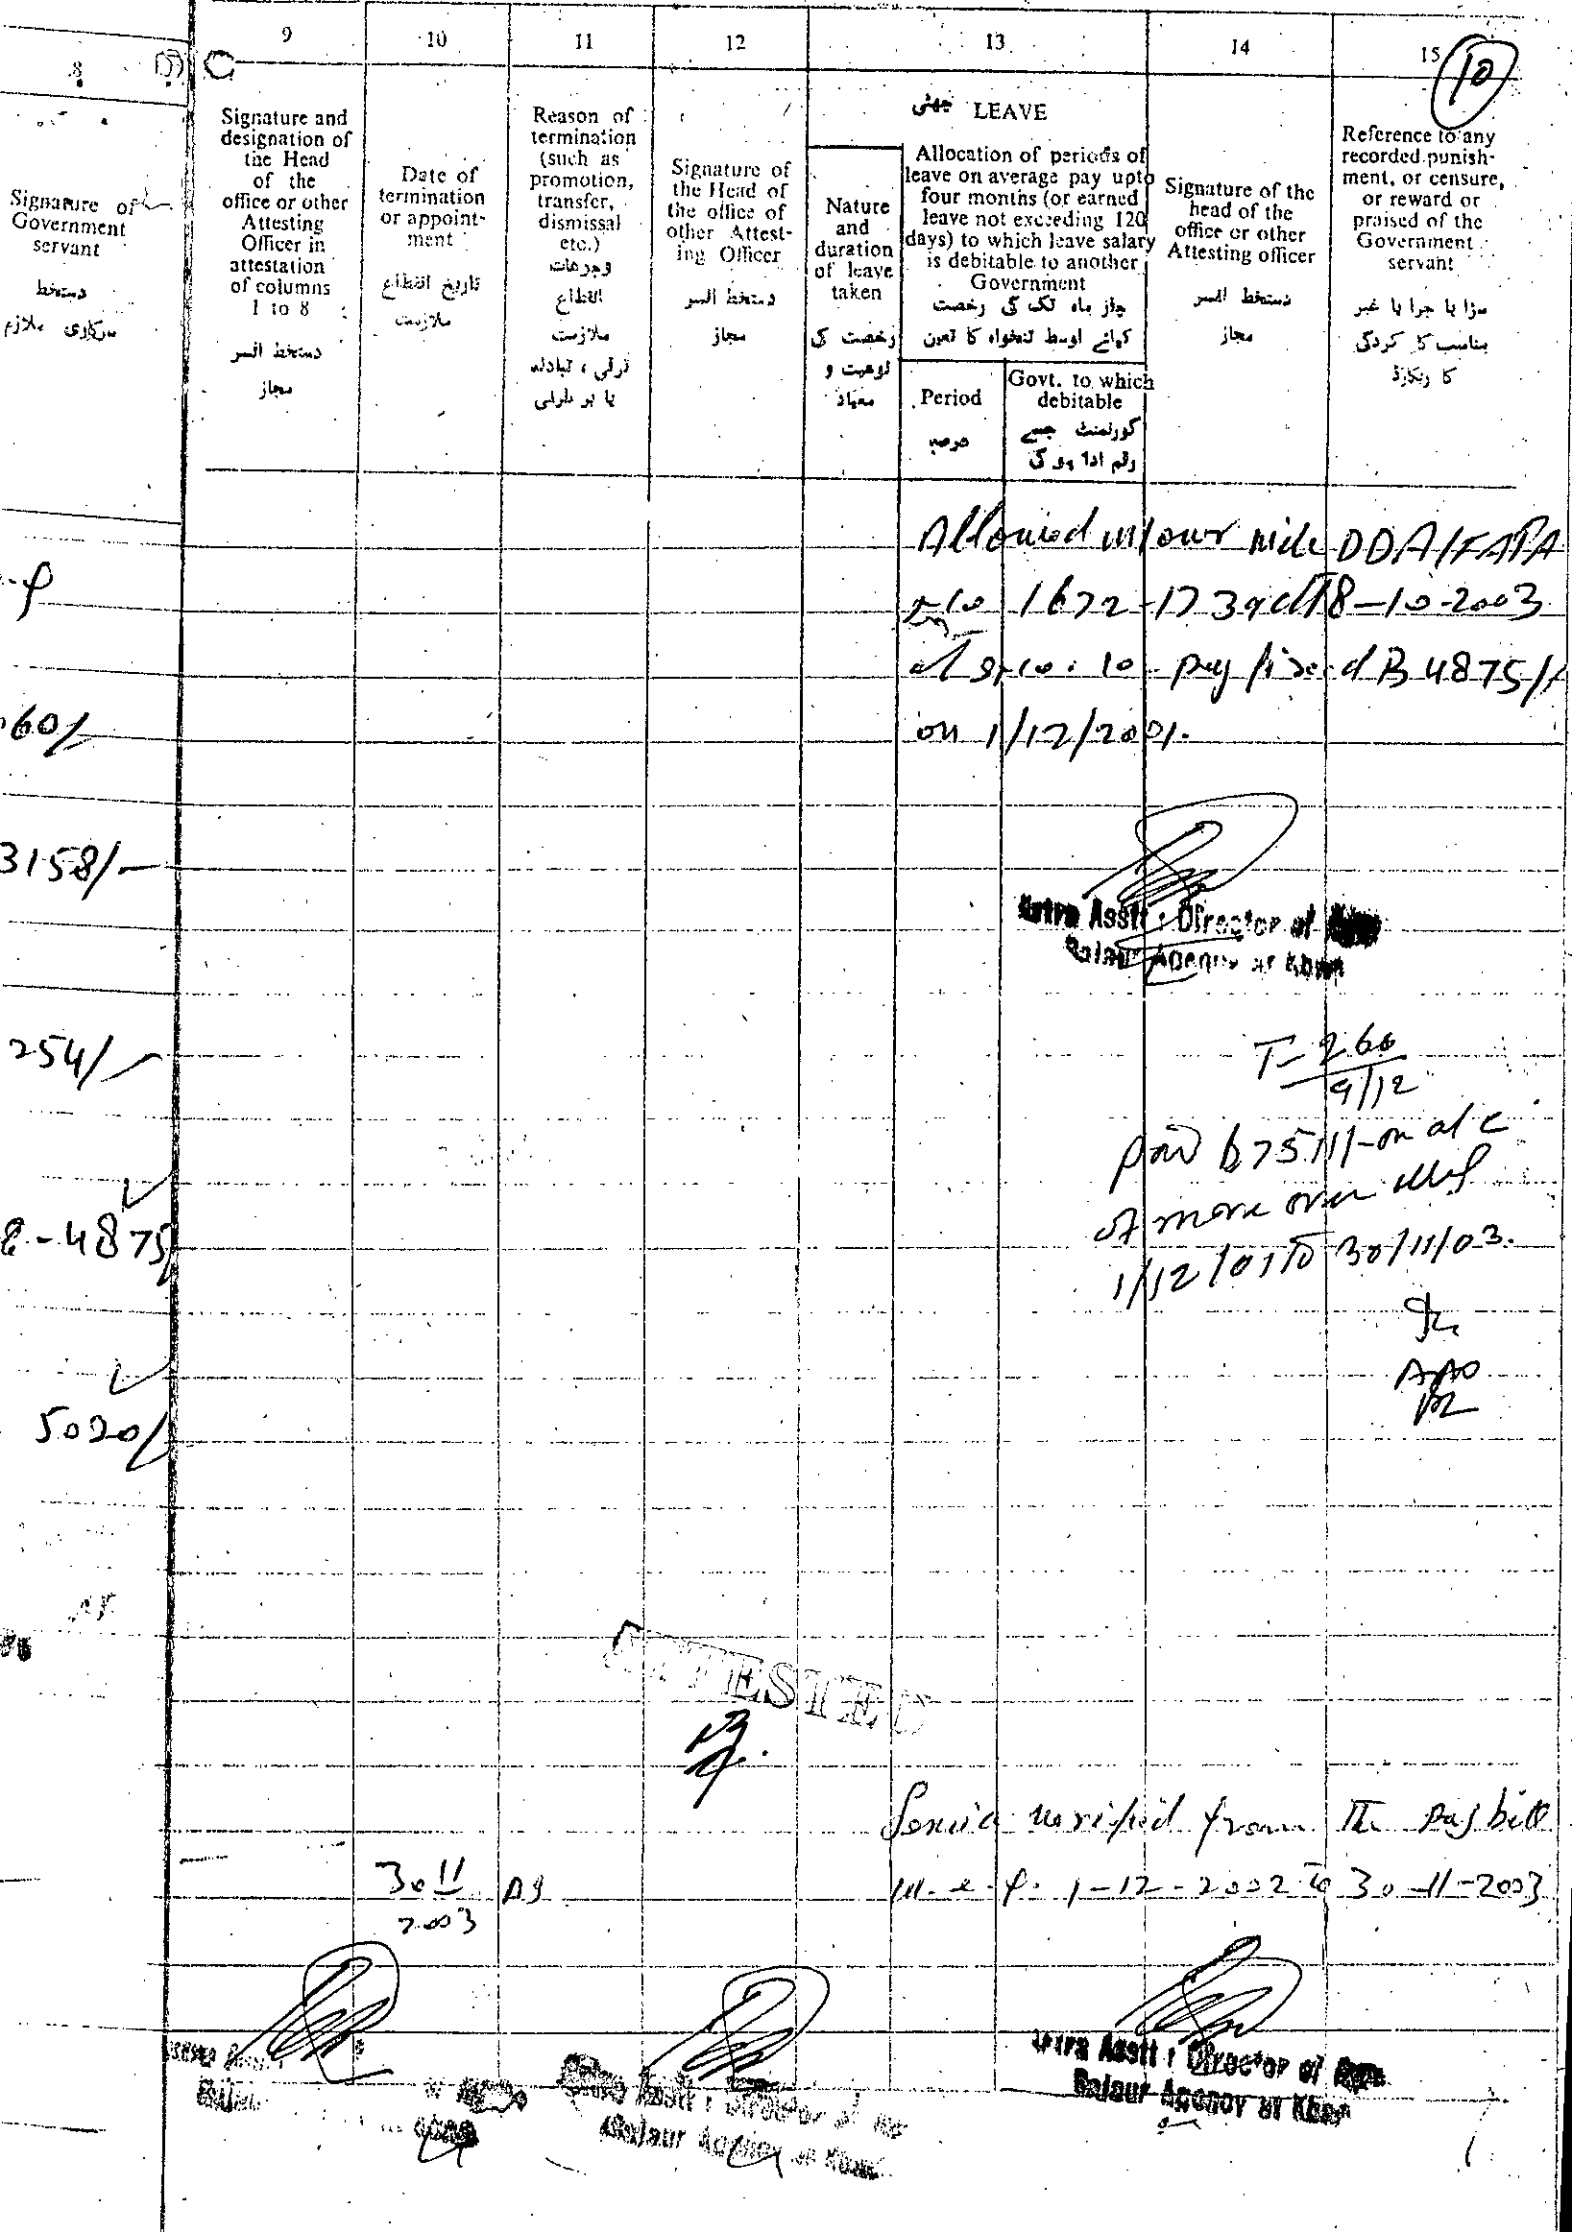 8
9
10
11
12
13
14
15
10
Signature of
Government
servant
دستخط
سرکاری ملازم
Signature and
designation of
the Head
of the
office or other
Attesting
Officer in
attestation
of columns
1 to 8
دستخط افسر
مجاز
Date of
termination
or appoint-
ment
تاریخ انقطاع
ملازمت
Reason of
termination
(such as
promotion,
transfer,
dismissal
etc.)
وجوہات
انقطاع
ملازمت
ترقی ، تبادلہ
یا بر طرفی
Signature of
the Head of
the office of
other Attest-
ing Officer
دستخط افسر
مجاز
چھٹی LEAVE
Nature
and
duration
of leave
taken
رخصت کی
نوعیت و
معیاد
Allocation of periods of
leave on average pay upto
four months (or earned
leave not exceeding 120
days) to which leave salary
is debitable to another
Government
چار ماہ تک کی رخصت
کیلئے اوسط تنخواہ کا تعین
Period
عرصہ
Govt. to which
debitable
گورنمنٹ جسے
رقم ادا ہو گی
Signature of the
head of the
office or other
Attesting officer
دستخط افسر
مجاز
Reference to any
recorded punish-
ment, or censure,
or reward or
praised of the
Government
servant
سزا یا جزا یا غیر
مناسب کارکردگی
کا ریکارڈ
Allowed m/over vide DDA/FATA
1672-1739 dt 18-10-2003
10 pay fixed Rs 4875/-
on 1/12/2001.
60/-
3158/-
Extra Asstt: Director of
Bajaur Agency at Khar
254/-
T-266
9/12
paid Rs 7511/- on a/c
of move over
1/12/01 to 30/11/03.
4875
AAO
5020/
ATTESTED
Service verified from the pay bill
w.e.f. 1-12-2002 to 30-11-2003
30 11
2003
AI
Extra Asstt: Director of
Bajaur Agency at Khar
Extra Asstt: Director of
Bajaur Agency at Khar